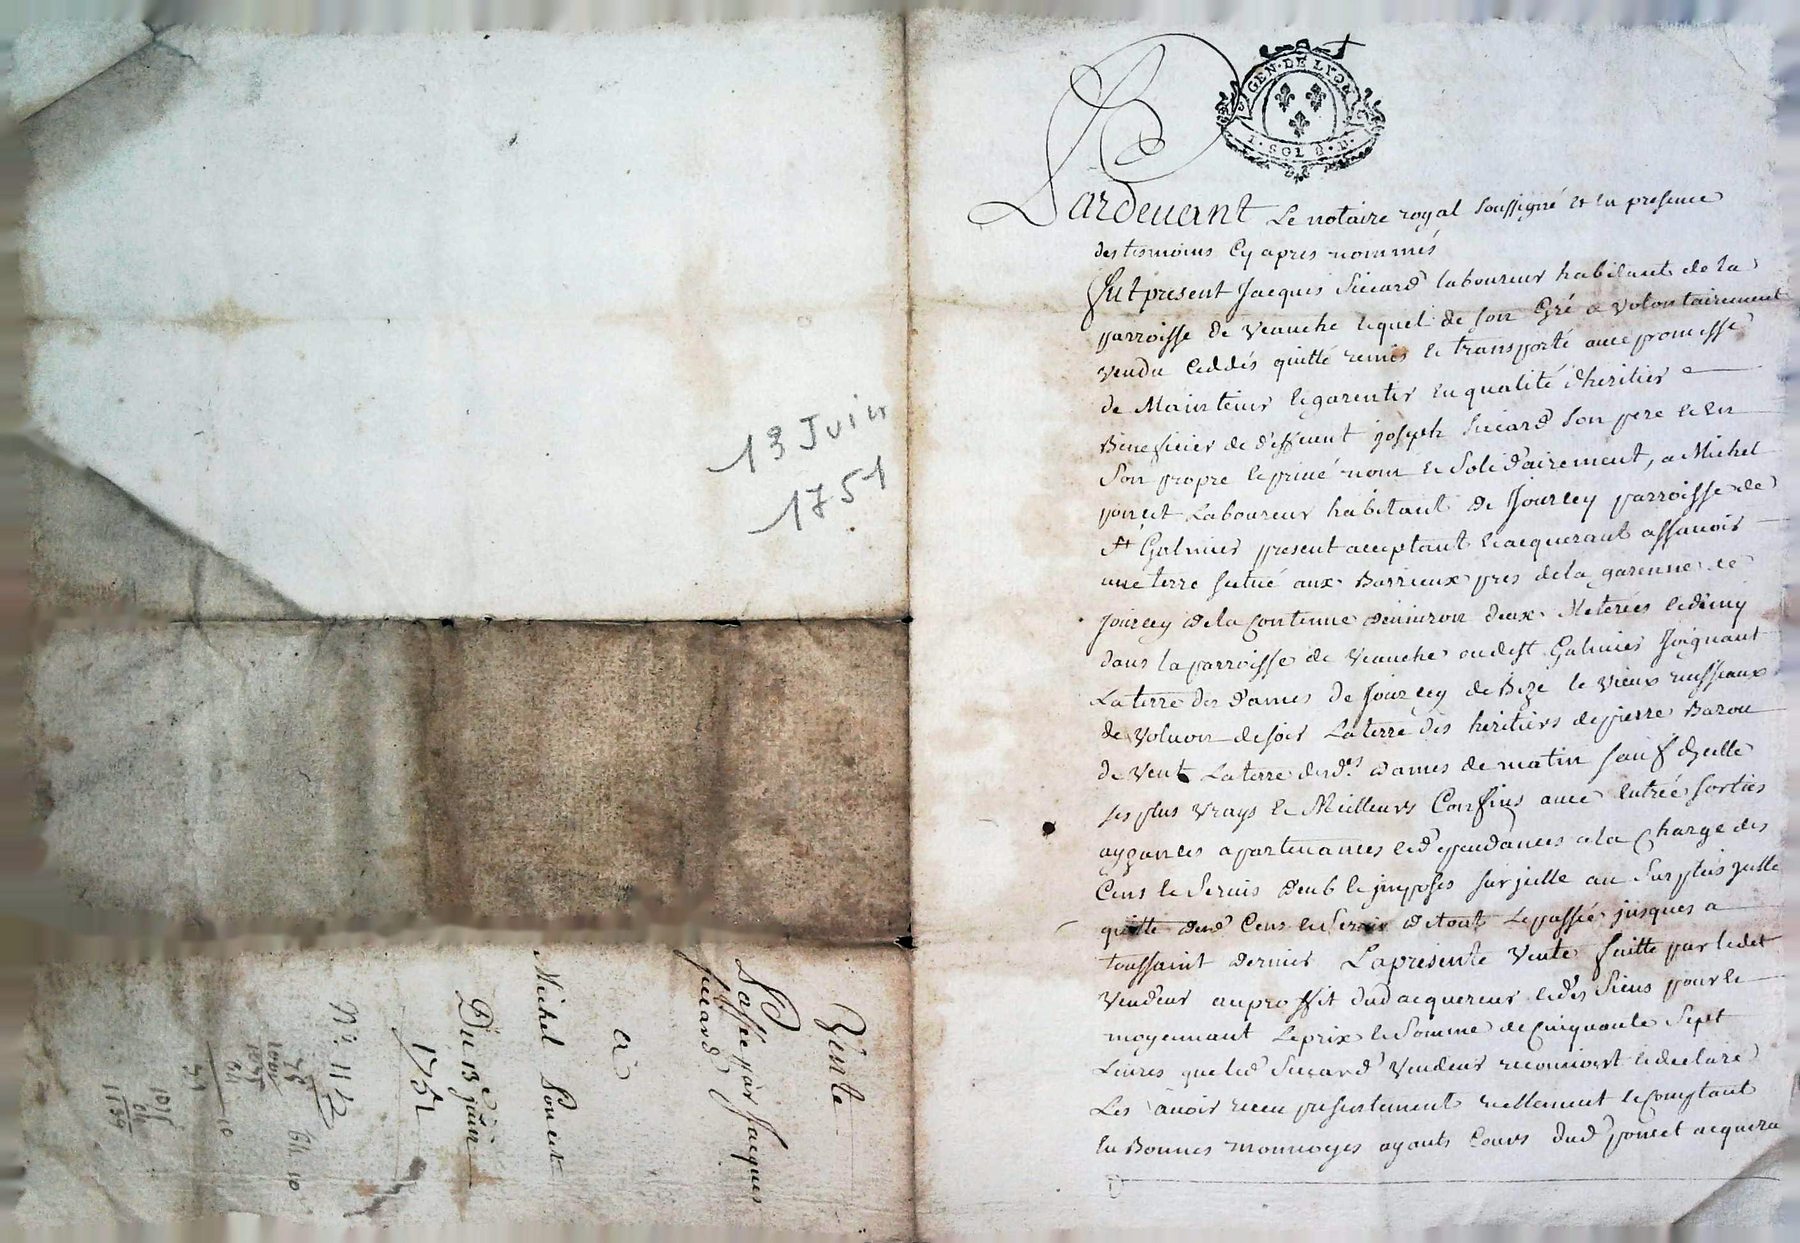 13 Juin
1751
Vente
Passée par Jacques
Siccard
à
Michel Poncet
Du 13e juin
1751
GEN·DE LYON
1·SOL
Pardeuant Le notaire royal soussigné et en presence
des tesmoins cy apres nommés
fut present Jacques Siccard laboureur habitant de la
parroisse de Veauche lequel de son Gré a volontairement
vendu ceddés quitté remis et transporté auec promesse
de Maintenir et garentir en qualité d'heritier
Beneficier de deffeunt joseph Siccard son pere et en
Son propre et priué nom et Solidairement, a Michel
poncet Laboureur habitant de Jourcey parroisse de
St Galmier present acceptant et acquerant assauoir
une terre situé aux Barrieux pres de la garenne de
Jourcey de la Contenue d'enuiron deux Meterées et demy
dans la parroisse de Veauche ou de St Galmier Joignant
La terre des dames de Jourcey de Bize le vieux ruisseaux
de de soir La terre des heritiers de pierre Barou
de Vent La terre desd.es dames de matin sauf d'icelle
ses plus vrays et Meilleurs Confins auec entrée sorties
apartenances et dependances a la Charge des
Cens et Seruis deub et imposés sur icelle au Surplus
quitte dud Cens et Seruis de tout Le passée jusques a
toussaint dernier La presente Vente faitte par ledit
Vendeur au proffit dud acquereur et des Siens pour et
moyennant Le prix et Somme de Cinquante Sept
Liures que led Siccard Vendeur reconnoist et declare
Les auoir receu presentement reellement et Comptant
en Bonnes monnoyes ayants Cours dud poncet